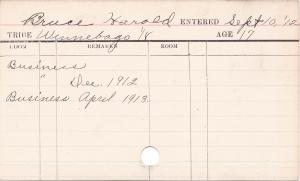 Bruce Harold ENTERED Sept 10, '12
TRIBE Winnebago 1/8 AGE 17
REMARKS ROOM
Business
" Dec. 1912
Business April 1913.